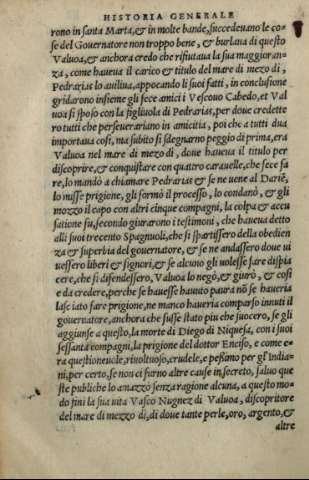 HISTORIA GENERALE
rono in santa Marta, & in molte bande, succedeuano le co-
se del Gouernatore non troppo bene, & burlana di questo
Valuoa, & anchora credo che rifiutaua la sua maggioran-
za, come haueua il carico & titulo del mare di mezo di,
Pedrarias lo auiliua, appocando li suoi fatti, in conclusione
gridarono insieme gli fece amici i Vescouo Cabedo, et Val
uoa si sposo con la figliuola di Pedrarias, per doue credette
ro tutti che perseuerariano in amicitia, poi che a tutti dua
importaua cosi, ma subito si sdegnarno peggio di prima, era
Valuoa nel mare di mezo di, doue haueua il titulo per
discoprire, & conquistare con quattro carauelle, che fece fa
re, lo mandò a chiamare Pedrarias & se ne uene al Dariē,
lo misse prigione, gli formò il processo, lo condanò, & gli
mozzo il capo con altri cinque compagni, la colpa & accu
satione fu, secondo giurarono i testimoni, che haueua detto
alli suoi trecento Spagnuoli, che si spartissero della obedien
za & superbia del gouernatore, & se ne andassero doue ui
uessero liberi & signori, & se alcuno gli uolesse fare dispia
cere, che si difendessero, Valuoa lo negò, & giurò, & cosi
e da credere, perche se hauesse hauuto paura nō se haueria
lasciato fare prigione, ne manco haueria comparso innuti il
gouernatore, anchora che fusse stato piu che suocero, se gli
aggiunse a questo, la morte di Diego di Niquesa, con i suoi
sessanta compagni, la prigione del dottor Enciso, e come e-
ra questioneuole, riuoltuoso, crudele, e pessimo per gl'India-
ni, per certo, se non ci furno altre cause in secreto, saluo que
ste publiche lo amazzò senza ragione alcuna, a questo mo-
do fini la sua uita Vasco Nugnez di Valuoa, discopritore
del mare di mezzo di, di doue tante perle, oro, argento, &
altre